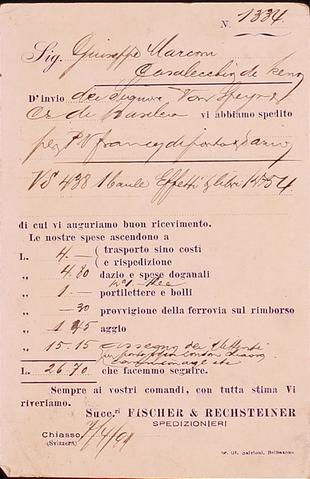 N. 1334
Sig. Giuseppe Marconi
Casalecchio di Reno
D'invio dei Signori Von Speyr &
C. di Basilea vi abbiamo spedito
per P.V. franco di porto e dazio
VS 438 1 baule Effetti & libri
di cui vi auguriamo buon ricevimento.
Le nostre spese ascendono a
L. 4.— trasporto sino costi
e rispedizione
„ 4.80 dazio e spese doganali
„ 1.— portilettere e bolli
„ —30 provvigione della ferrovia sul rimborso
„ 1.45 aggio
„ 15-15 assegno dei
L. 26.70 che facemmo seguire.
Sempre ai vostri comandi, con tutta stima Vi
riveriamo.
Succ.ri FISCHER & RECHSTEINER
SPEDIZIONIERI
Chiasso
(Svizzera)